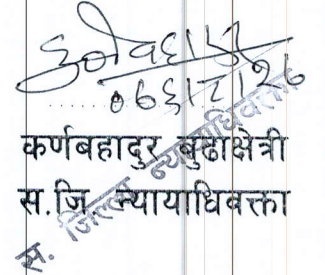 ०६३।८।२६
कर्णबहादुर बुढाक्षेत्री
स.जि. न्यायाधिवक्ता
स. जिल्ला न्यायाधिवक्ता